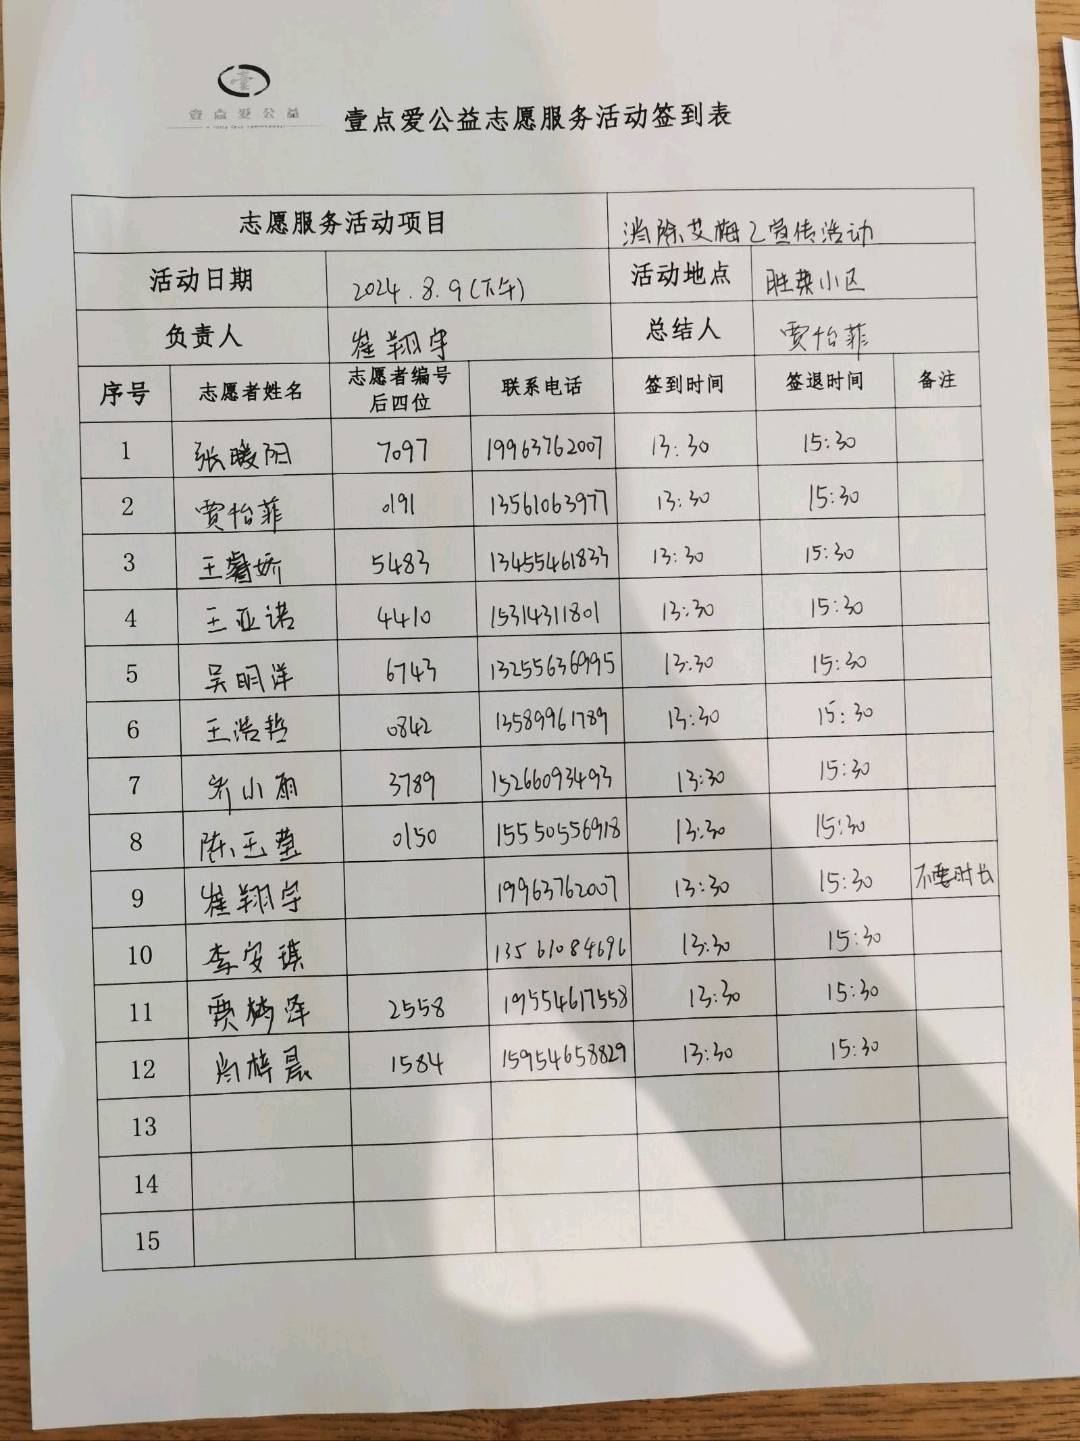 壹点爱公益
壹点爱公益志愿服务活动签到表
志愿服务活动项目 消除艾梅乙宣传活动
活动日期 2024.8.9(下午) 活动地点 胜荣小区
负责人 崔翔宇 总结人 贾怡菲
序号 志愿者姓名 志愿者编号后四位 联系电话 签到时间 签退时间 备注
1 张暖阳 7097 19963762007 13:30 15:30
2 贾怡菲 0191 13561063977 13:30 15:30
3 王睿娇 5483 13455461833 13:30 15:30
4 王亚诺 4410 15314311801 13:30 15:30
5 吴明洋 6743 13255636995 13:30 15:30
6 王浩哲 0842 13589961789 13:30 15:30
7 乔小雨 3789 15266093493 13:30 15:30
8 陈玉莹 0150 15550556918 13:30 15:30
9 崔翔宇 19963762007 13:30 15:30 不要时长
10 李安琪 13561084696 13:30 15:30
11 贾梦泽 2558 19554617558 13:30 15:30
12 尚梓晨 1584 15954658829 13:30 15:30
13
14
15